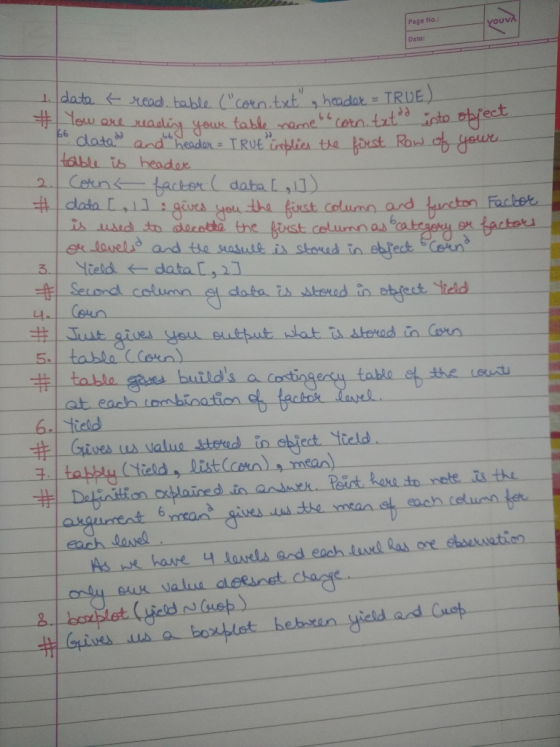 Page No.:
Date:
youva
1. data ← read.table ("corn.txt", header = TRUE)
# You are reading your table name "corn.txt" into object
"data" and "header = TRUE" implies the first Row of your
table is header
2. Corn ← factor ( data [ ,1])
# data [ ,1] : gives you the first column and functon Factor
is used to decode the first column as 'category or factors
or levels' and the result is stored in object "Corn"
3. Yield ← data [ , 2]
# Second column of data is stored in object Yield
4. Corn
# Just gives you output what is stored in Corn
5. table (Corn)
# table build's a contingency table of the counts
at each combination of factor level.
6. Yield
# Gives us value stored in object Yield.
7. tapply (Yield, list (corn), mean)
# Definition explained in answer. Point here to note is the
argument 'mean' gives us the mean of each column for
each level.
As we have 4 levels and each level has one observation
only our value doesnot change.
8. boxplot (yield ~ Crop)
# Gives us a boxplot between yield and Crop